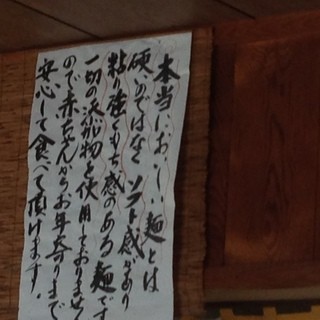 本当においしい麺とは
硬いのではなくソフト感があり
粘り強くもち感のある麺です
一切の添加物を使用しておりません
ので赤ちゃんからお年寄りまで
安心して食べて頂けます。